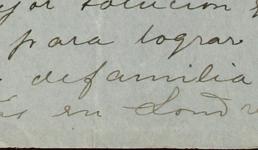 jor solución
para lograr
defamilia
en Londr